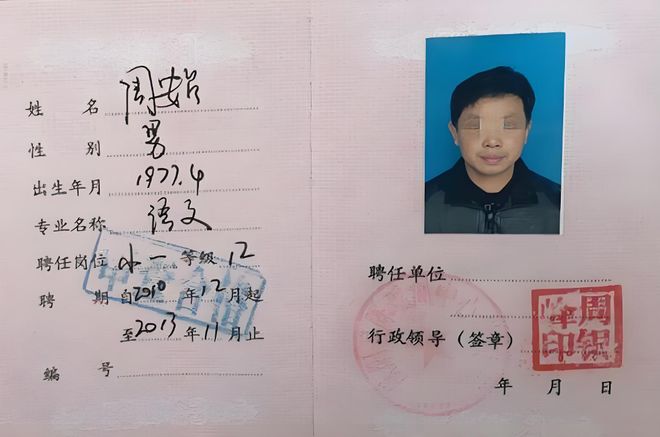 姓名 周安治
性别 男
出生年月 1977.4
专业名称 语文
聘任岗位 小一 等级 12
聘期 自2010年12月起
至2013年11月止
编号
聘任单位
行政领导（签章）
年 月 日